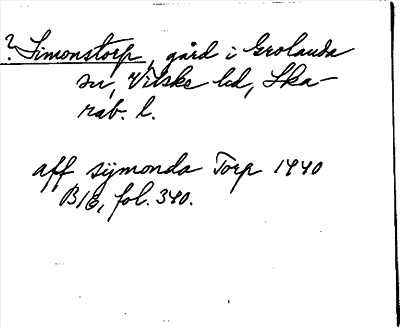 ? Simonstorp, gård i Grolanda
sn, Vilske hd, Ska-
rab. l.
aff symonda Torp 1440
B16, fol. 340.